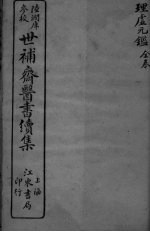 理虛元鑑 全叁
陸潤庠
參校
世補齋醫書續集
上海
江東書局
印行